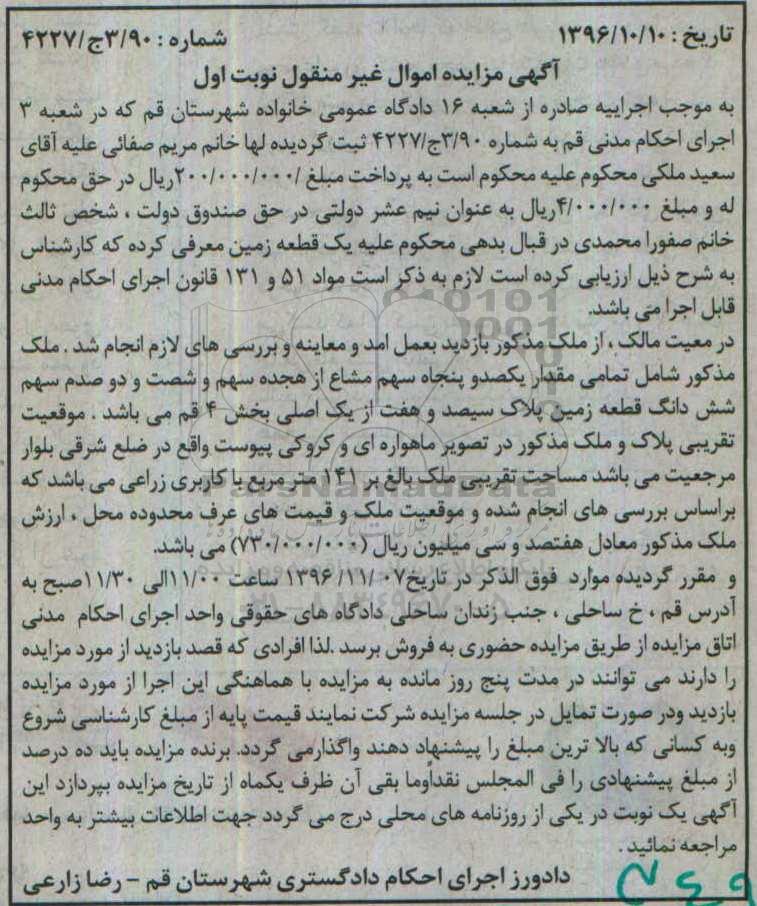 تاریخ : ۱۳۹۶/۱۰/۱۰
شماره : ۳/۹۰ج/۴۲۲۷
آگهی مزایده اموال غیر منقول نوبت اول
به موجب اجراییه صادره از شعبه ۱۶ دادگاه عمومی خانواده شهرستان قم که در شعبه ۳
اجرای احکام مدنی قم به شماره ۳/۹۰ج/۴۲۲۷ ثبت گردیده لها خانم مریم صفائی علیه آقای
سعید ملکی محکوم علیه محکوم است به پرداخت مبلغ /۲۰۰/۰۰۰/۰۰۰ریال در حق محکوم
له و مبلغ ۴/۰۰۰/۰۰۰ریال به عنوان نیم عشر دولتی در حق صندوق دولت ، شخص ثالث
خانم صفورا محمدی در قبال بدهی محکوم علیه یک قطعه زمین معرفی کرده که کارشناس
به شرح ذیل ارزیابی کرده است لازم به ذکر است مواد ۵۱ و ۱۳۱ قانون اجرای احکام مدنی
قابل اجرا می باشد.
در معیت مالک ، از ملک مذکور بازدید بعمل امد و معاینه و بررسی های لازم انجام شد . ملک
مذکور شامل تمامی مقدار یکصدو پنجاه سهم مشاع از هجده سهم و شصت و دو صدم سهم
شش دانگ قطعه زمین پلاک سیصد و هفت از یک اصلی بخش ۴ قم می باشد . موقعیت
تقریبی پلاک و ملک مذکور در تصویر ماهواره ای و کروکی پیوست واقع در ضلع شرقی بلوار
مرجعیت می باشد مساحت تقریبی ملک بالغ بر ۱۴۱ متر مربع با کاربری زراعی می باشد که
براساس بررسی های انجام شده و موقعیت ملک و قیمت های عرف محدوده محل ، ارزش
ملک مذکور معادل هفتصد و سی میلیون ریال (۷۳۰/۰۰۰/۰۰۰) می باشد.
و مقرر گردیده موارد فوق الذکر در تاریخ۱۳۹۶/۱۱/۰۷ ساعت ۱۱/۰۰الی ۱۱/۳۰صبح به
آدرس قم ، خ ساحلی ، جنب زندان ساحلی دادگاه های حقوقی واحد اجرای احکام مدنی
اتاق مزایده از طریق مزایده حضوری به فروش برسد .لذا افرادی که قصد بازدید از مورد مزایده
را دارند می توانند در مدت پنج روز مانده به مزایده با هماهنگی این اجرا از مورد مزایده
بازدید ودر صورت تمایل در جلسه مزایده شرکت نمایند قیمت پایه از مبلغ کارشناسی شروع
وبه کسانی که بالا ترین مبلغ را پیشنهاد دهند واگذارمی گردد. برنده مزایده باید ده درصد
از مبلغ پیشنهادی را فی المجلس نقداًوما بقی آن ظرف یکماه از تاریخ مزایده بپردازد این
آگهی یک نوبت در یکی از روزنامه های محلی درج می گردد جهت اطلاعات بیشتر به واحد
مراجعه نمائید .
دادورز اجرای احکام دادگستری شهرستان قم – رضا زارعی